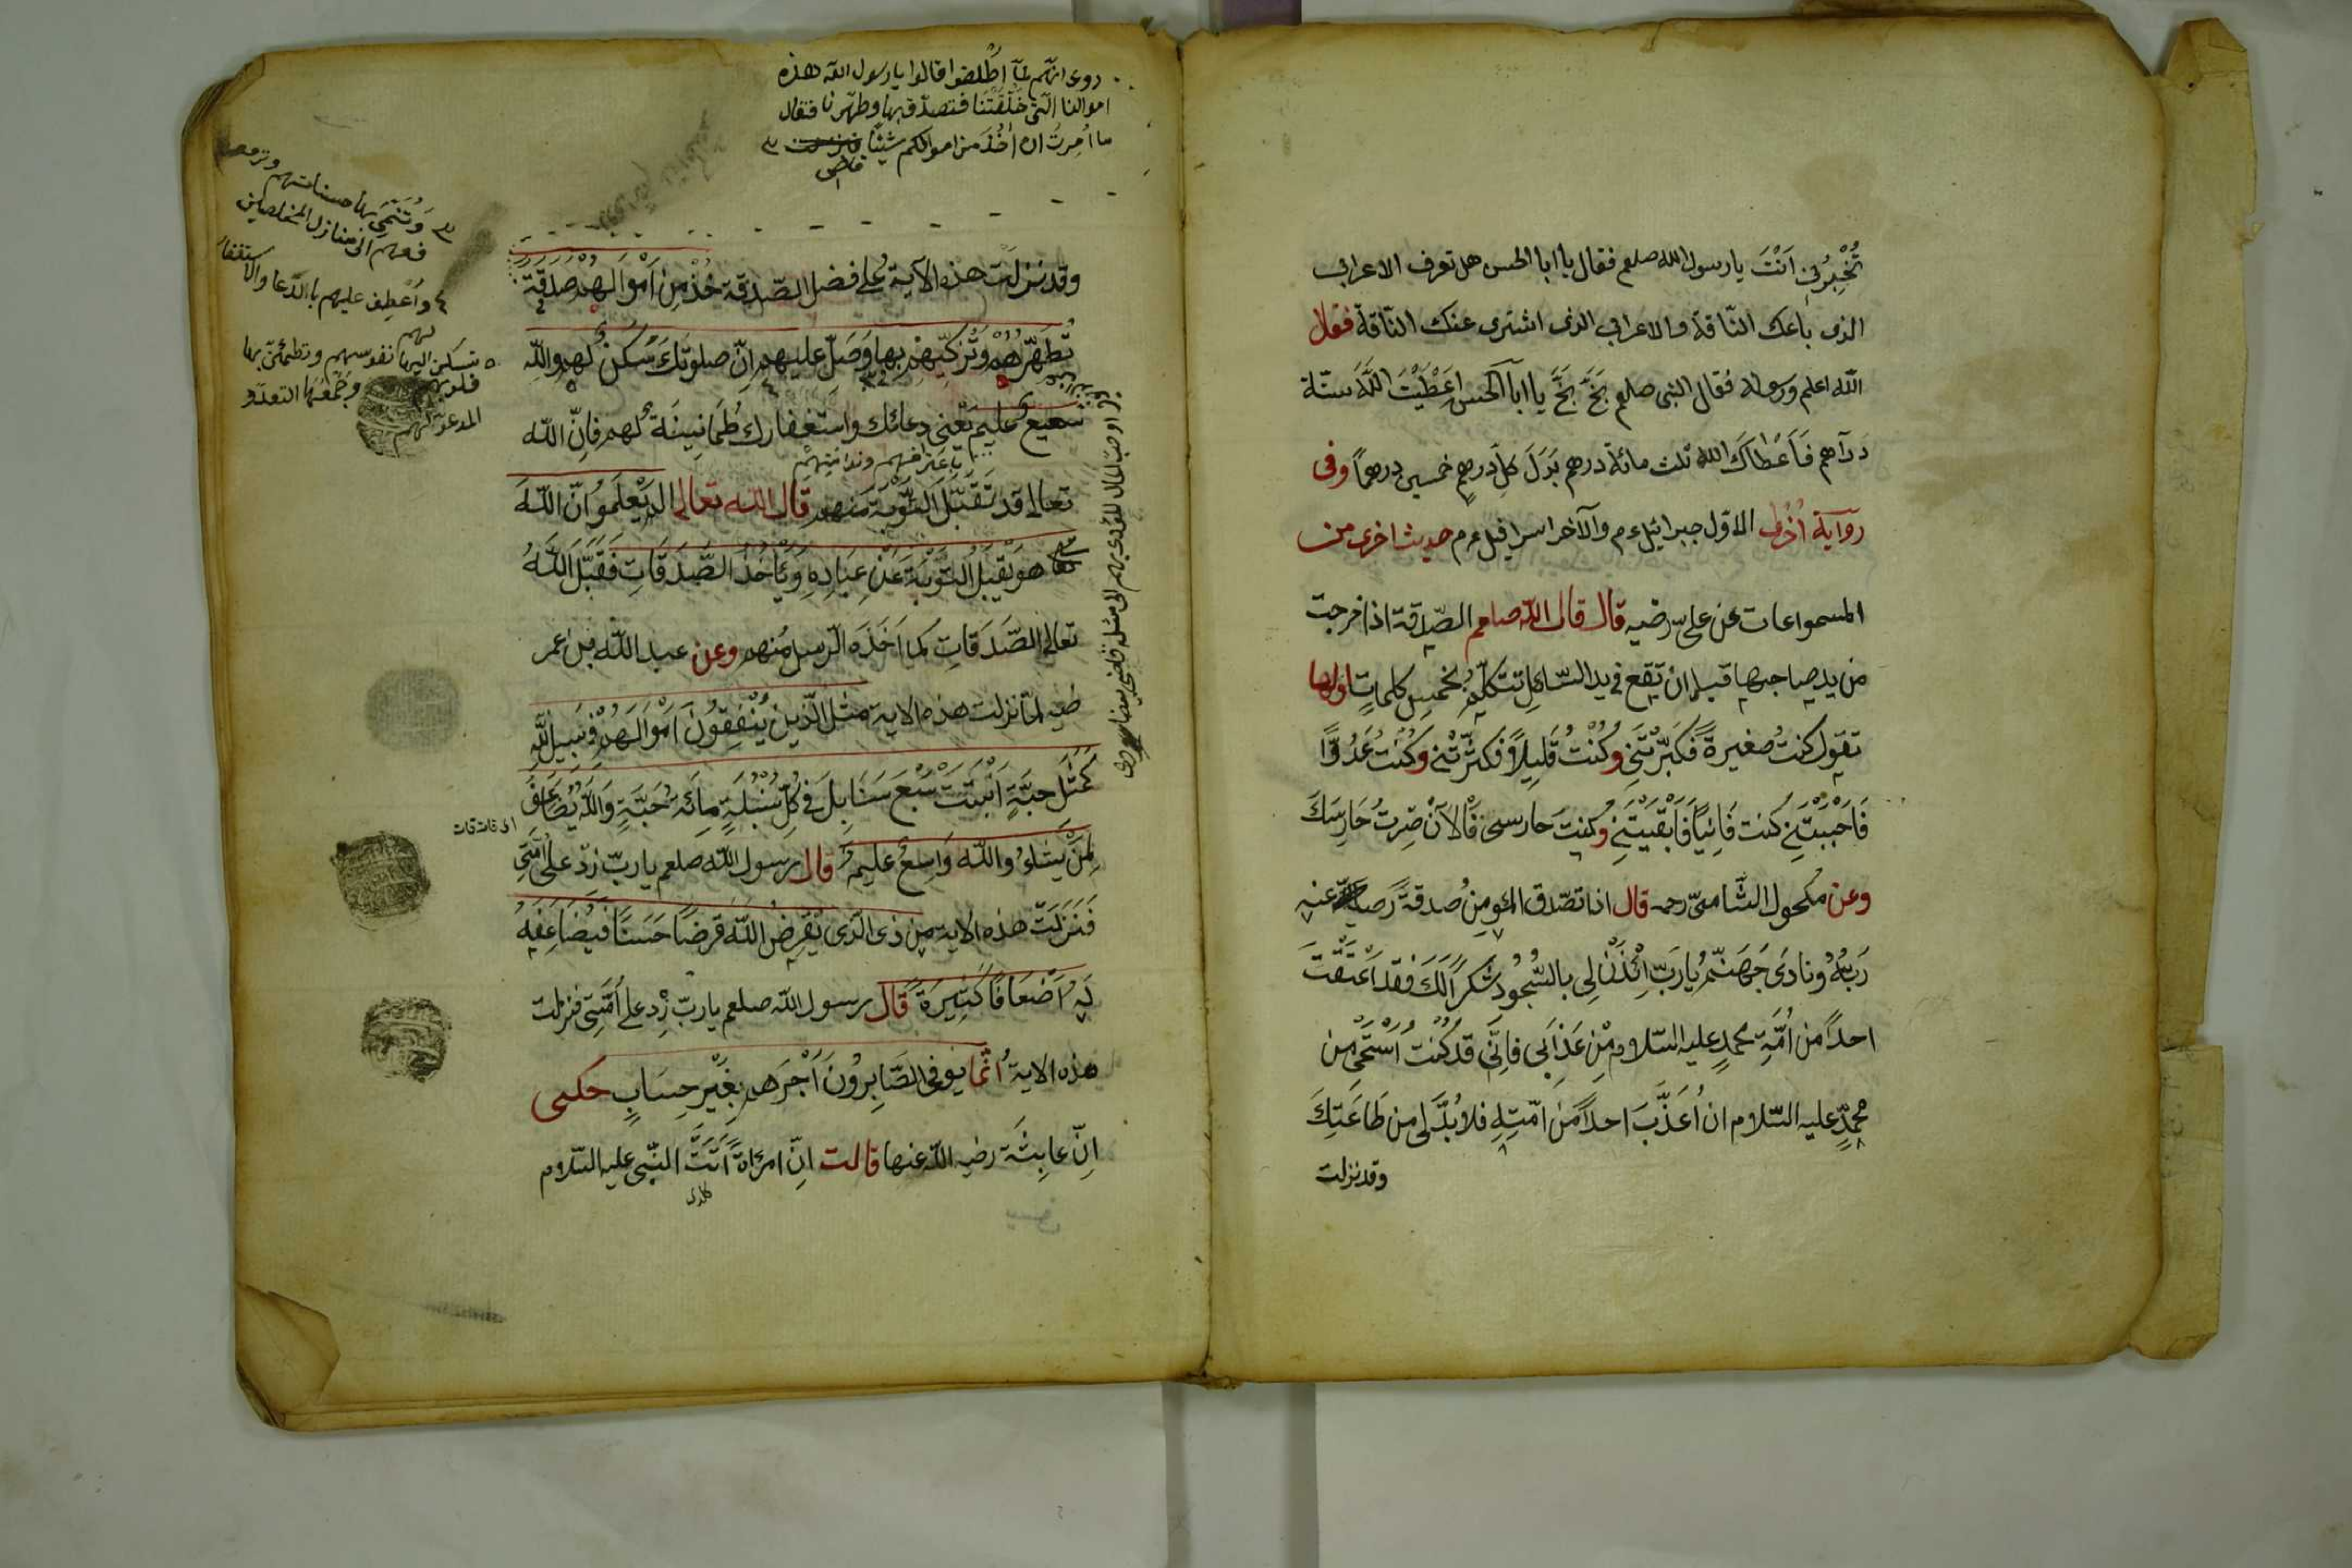 تُخْبِرُنِي اَنْتَ يا رسول الله صلعم فقال يا ابا الحسن هل تعرف الاعرابى
الذى باعك النّاقة والاعرابى الذى اشترى عنك النّاقة فقال
الله اعلم ورسوله فقال النبى صلعم بَخَّ بَخَّ يا ابا الحسن اعَْطَيْتَ اللّٰهَ ستّة
دَرَاهم فَاَعْطاكَ الله ثلث مائة درهم بَدَلَ كلّ درهمٍ خمسين درهمًا وفى
رواية اُخْرٰى الاوّل جبرائيل ءم والآخر اسرافيل ءم حديث اخرى من
المسمواعات عن علىّ رضيه قال قال الله صلعم الصّدقة اذا خرجت
من يد صاحبها قبل ان تقع فى يد السّائل تتكلّم بخمس كلماتٍ اوّلها
تقول كنتُ صغيرةً فَكَبَّرْتَنِى وكُنْتُ قَلِيلًا فَكَثَّرْتَنِى وكُنْتُ عَدُوًّا
فَاَحْبَبْتَنِى كُنت فَانِيًا فَاَبْقَيْتَنِى وكُنتَ حارسى فَالْآن صِرتُ حَارِسَكَ
وعن مكحول الشّامىّ رحمه قال اذا تصّدق المؤمِن صدقةً رَضِيَ عنه
رَبّهُ ونادَى جَهَنّمُ يارَبّ اِئْذَنْ لِى بالسُّجُودِ شكرًا لَكَ فقد اَعْتَقْتَ
احدًا من اُمّةِ محمدٍ عليه السّلام مْنِ عَذَابى فانّى قد كُنتُ اَسْتَحْىِ من
محمدٍ عليه السّلام ان اُعَذّبَ احدًا من امّتِهِ فلا بُدَّ لى من طَاعَتِكَ
وقد نزلت
روى انّهم لمّا اُطْلقوا قالوا يا رسول الله هذه
اموالنا الّتى خَلَّفَتْنا فتصدّق بها وطهّرنا فقال
ما اُمِرتُ ان اٰخُذَ من اموالكم شيئًا فنزلت
قاضى
وَتُنَمِّى بها حسناتهم وترفعهم
فوقهم الى منازل المخلصين
واَعْطِف عليهم باالدّعا والاستغفار
لهم
تسكن اليها نفوسهم وتطمئنّ بها
قلوبهم وجَمْعُها لتعدّد
المدعوّ لهم
وقد نزلت هذه الآية على فضل الصّدقة خُذْ مِنْ اَمْوَالهمْ صَدقةً
تُطَهّرُهُمْ وَتُزَكِّيهِمْ بها وَصَلّ عليهم اِنّ صلوتَكَ سَكَنٌ لهم واللّه
سَمِيعٌ عليم يعْنى دعائك واستغفارك طُمَانِينَةٌ لهم فاِنّ اللّه
باعترافهم وندامتهم
تعالى قد تَقَبّلَ التّوْبةَ منهم قال الله تعالى الم يَعْلَموُا انّ اللّٰهَ
هو يَقْبَلُ التّوْبَةَ عَنْ عِبَادِهِ وَيَأخُذُ الصَّدَقَاتِ فَقَبّلَ اللّهُ
تعالى الصَّدَقَاتِ كما اَخَذَه الرّسولُ منهم وعن عبد اللّه بن عمر
ضيه لمّا نزلت هذه الاية مَثلُ الّذينَ يُنْفِقُونَ اَمْوَالَهمْ فى سَبيلِ اللّهِ
كَمَثَلِ حبّةٍ اَنْبَتَتْ سَبْعَ سَنَابِلَ فى كلّ سُنْبُلَةٍ مِائَةُ حَبَّةٍ وَاللّهُ يُضَاعِفُ
لِمَنْ يَشاءُ واللّٰه وَاسِعٌ عليمٌ قال رسول اللّٰه صلعم يا ربّ زدْ على اُمّتِى
فَنَزَلَتْ هذه الاية مَن ذى الّذى يُقْرِضُ اللّٰهَ قَرضًا حَسَنًا فَيُضَاعِفَهُ
لَهُ اَضْعَافًا كَثِيرَةً قال رسول اللّه صلعم يا ربّ زِد على اُمّتِى فنزلت
هذه الاية اِنّما يوفى الصَّابِرُونَ اَجْرَهم بِغَيْرِ حِسَابٍ حكى
اِنّ عايشَةَ رضيه اللّه عنها قالت اِنّ امرَاةً اَتَتْ النّبى عليه السّلام